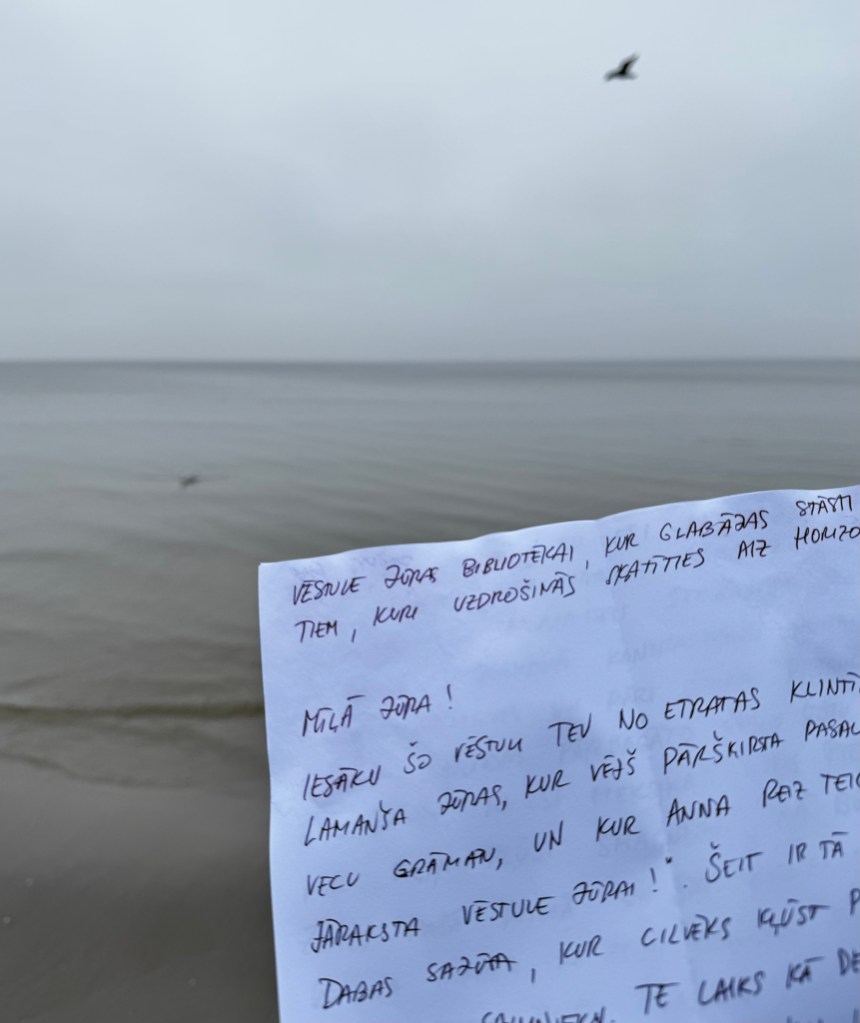 VĒSTULE JŪRAS BIBLIOTĒKAI, KUR GLABĀJAS STĀSTI
TIEM, KURI UZDROŠINĀS SKATĪTIES AIZ HORIZO
MĪĻĀ JŪRA!
IESĀKU ŠO VĒSTULI TEV NO ETRATAS KLINTĪ
LAMANŠA JŪRAS, KUR VĒJŠ PĀRŠĶIRSTA PASAU
VECU GRĀMATU, UN KUR ANNA REIZ TEIC
JĀRAKSTA VĒSTULE JŪRAI!". ŠEIT IR TĀ
DABAS SAJŪTA, KUR CILVĒKS KĻŪST P
TE LAIKS KĀ DE